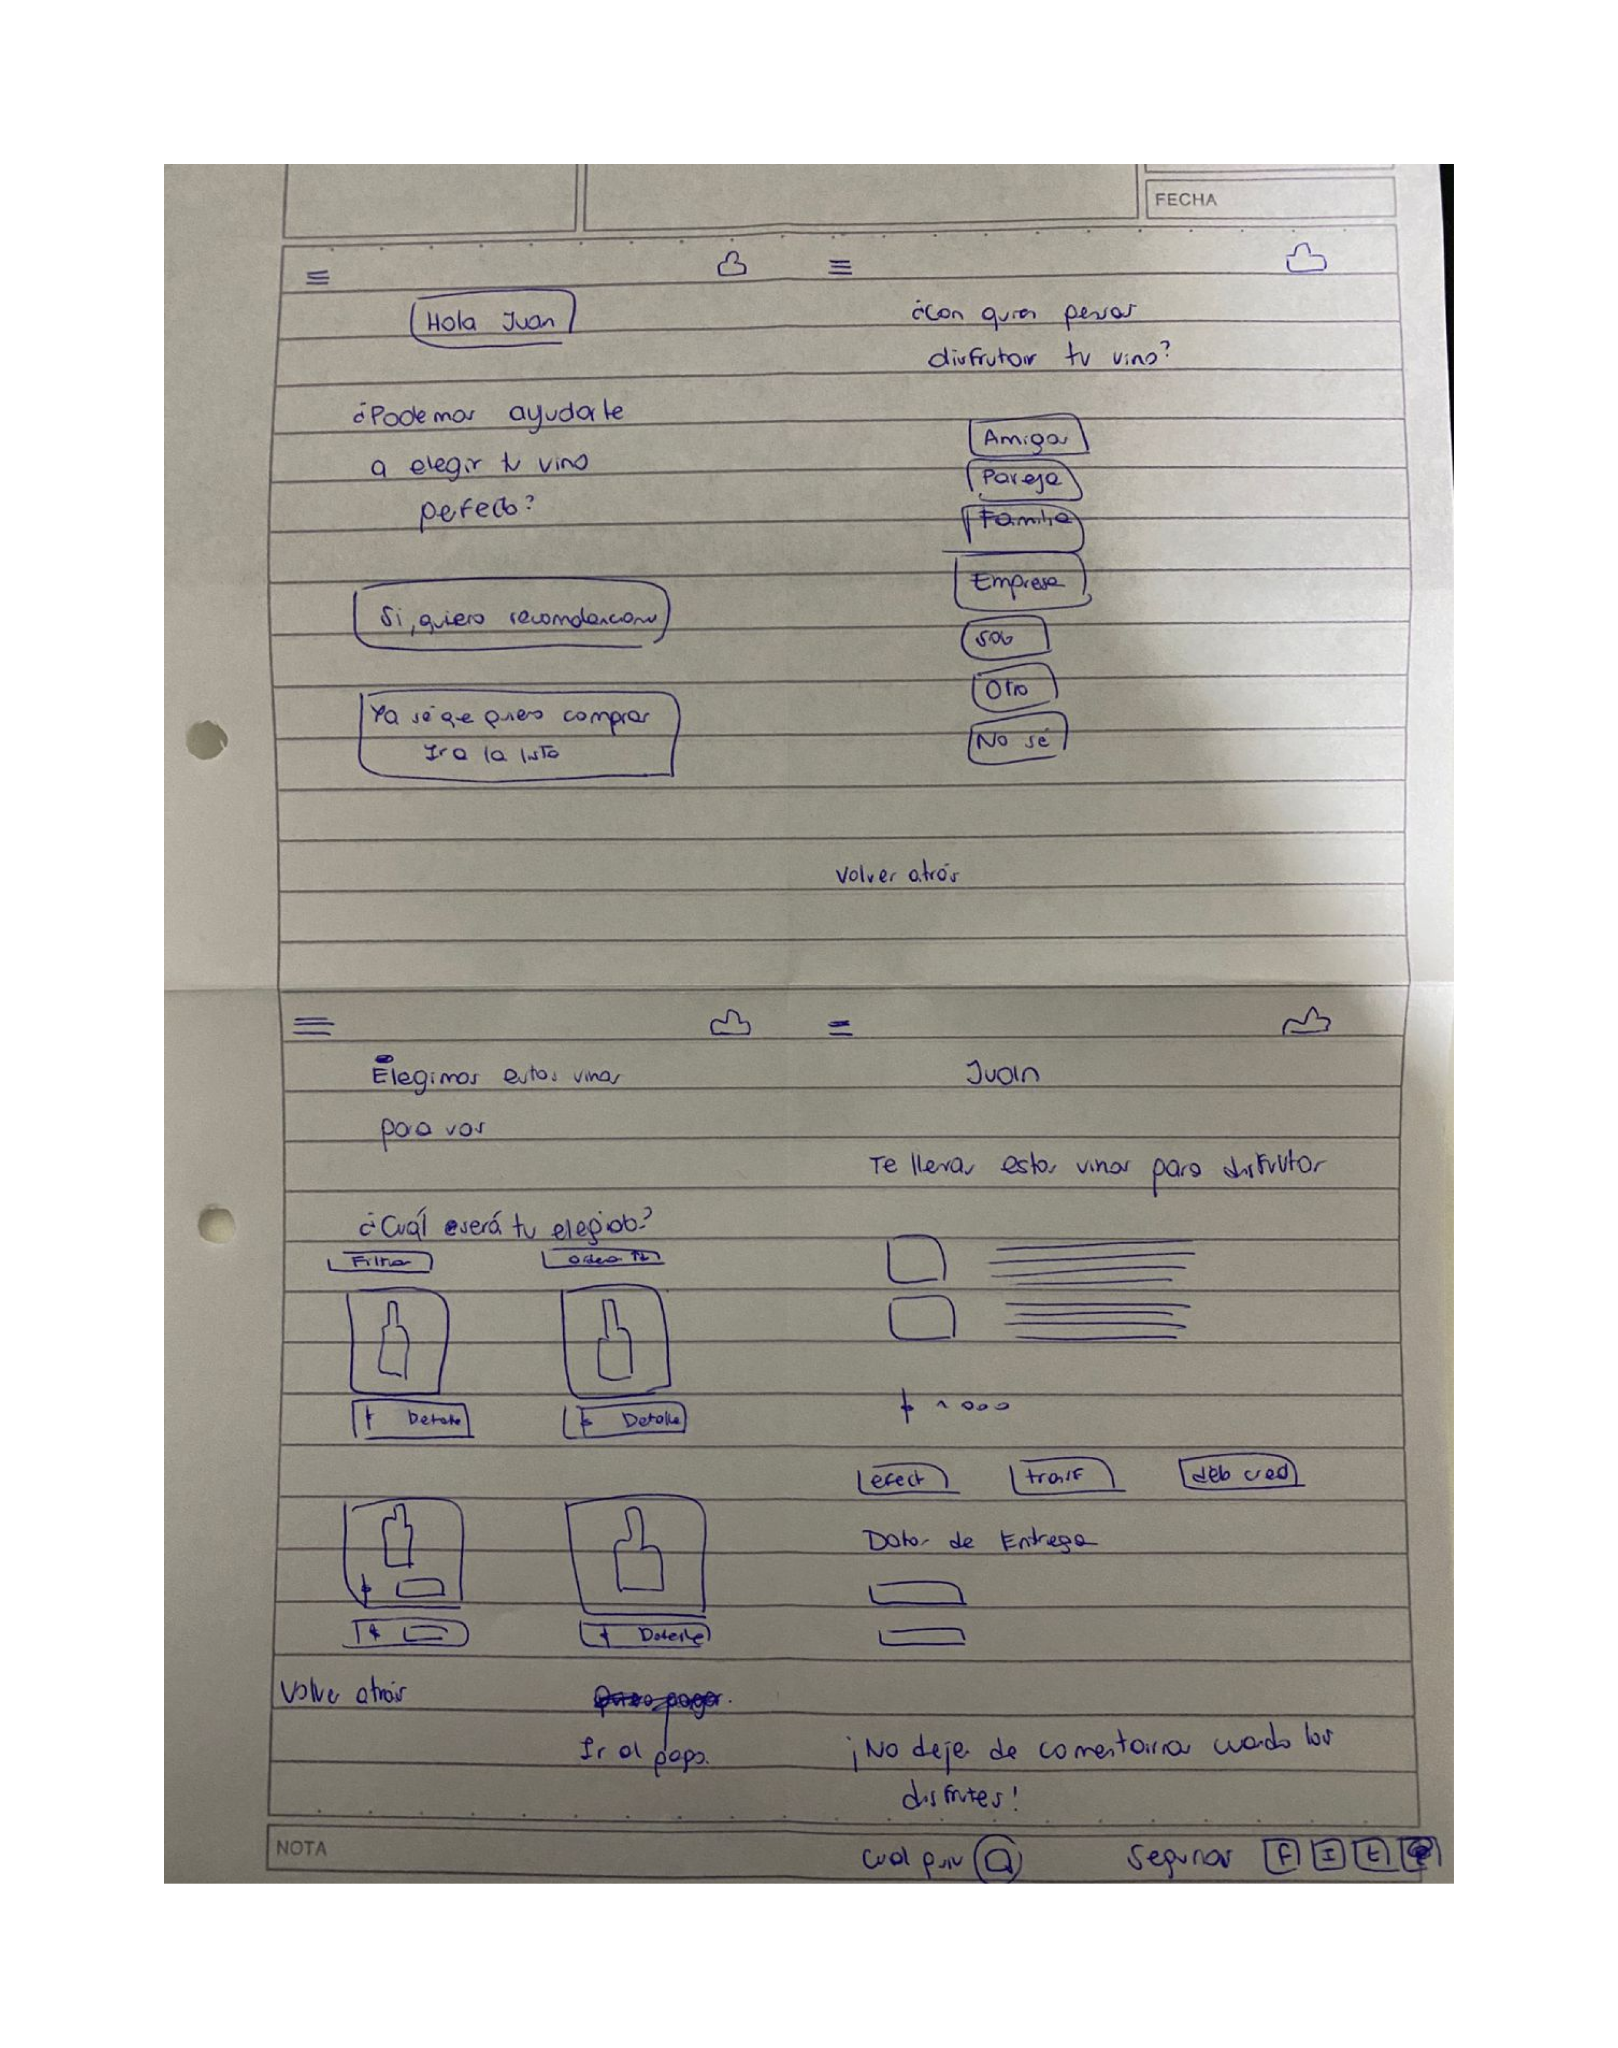 FECHA
Hola Juan
¿Podemos ayudarte
a elegir tu vino
perfecto?
Si, quiero
Ya sé que quiero comprar
Ir a la lista
¿Con quien pensas
disfrutar tu vino?
Amigos
Pareja
Familia
Empresa
Solo
Otro
No sé
Volver atrás
Elegimos estos vinos
para vos
¿Cuál será tu elegido?
Filtrar
$ Detalle
$ Detalle
$
$
$ Detalle
Volver atrás
Ir al pago.
Juan
Te llevas estos vinos para disfrutar
$ 1000
efect transf deb cred
Datos de Entrega
¡No dejes de comentarnos cuando los
disfrutes!
NOTA
Seguinos F I t